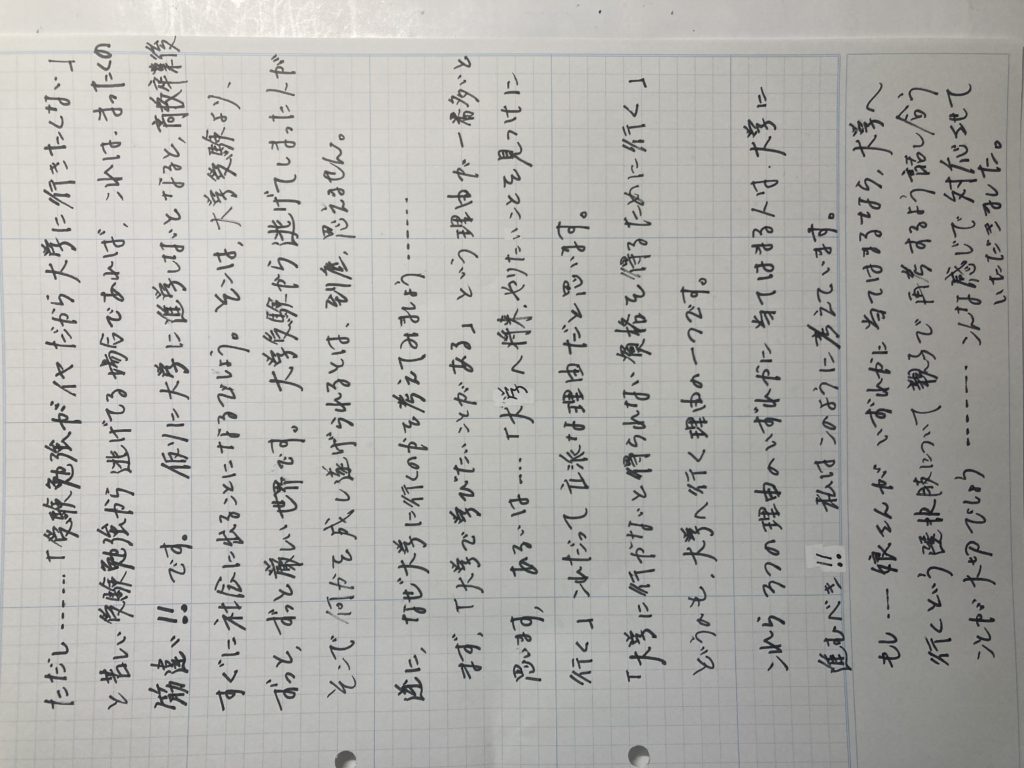 ただし……「受験勉強がイヤだから大学に行きたくない」
と苦しい受験勉強から逃げてる場合であれば、それは、まったくの
筋違い!! です。 仮りに大学に進学しないとなると、高校卒業後
すぐに社会に出ることになるでしょう。そこは、大学受験より、
ずっと、ずっと厳しい世界です。 大学受験から逃げてしまった人が
そこで何かを成し遂げられるとは、到底、思えません。
逆に、なぜ大学に行くのかを考えてみましょう……
まず、「大学で学びたいことがある」という理由が一番多いと
思います。あるいは…「大学へ将来、やりたいことを見つけに
行く」これだって立派な理由だと思います。
「大学に行かないと得られない資格を得るために行く」
というのも、大学へ行く理由の一つです。
これら3つの理由のいずれかに当てはまる人は、大学に
進むべき!! 私はこのように考えています。
もし…娘さんがいずれかに当てはまるなら、大学へ
行くという選択肢について親子で再考するよう話し合う
ことが大切でしょう………こんな感じで対応させて
いただきました。